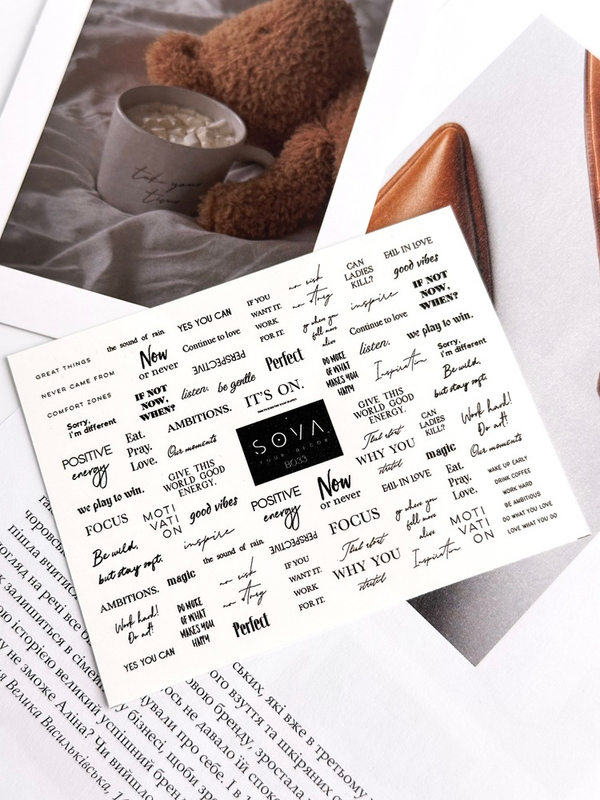 take your
time
GREAT THINGS
NEVER CAME FROM
COMFORT ZONES
the sound of rain
YES YOU CAN
IF YOU
WANT IT,
WORK
FOR IT.
no risk
no story
CAN
LADIES
KILL?
FALL IN LOVE
good vibes
Now
or never
Continue to love
PERSPECTIVE
Perfect
go where you
fell more
alive
inspire
IF NOT
NOW,
WHEN?
Sorry,
i'm different
IF NOT
NOW,
WHEN?
listen.
be gentle
IT'S ON.
Continue to love
listen.
we play to win.
DO MORE
OF WHAT
MAKES YOU
HAPPY
Inspiration
Sorry,
i'm different
POSITIVE
energy
Eat.
Pray.
Love.
AMBITIONS.
Our moments
SOVA
YOUR DECOR
B033
GIVE THIS
WORLD GOOD
ENERGY.
Be wild,
but stay soft.
we play to win.
GIVE THIS
WORLD GOOD
ENERGY.
WHY YOU
started
CAN
LADIES
KILL?
Work hard!
Or act!
FOCUS
MOTI
VATI
ON
good vibes
POSITIVE
energy
Now
or never
FALL IN LOVE
magic
Our moments
Be wild,
but stay soft.
inspire
the sound of rain
PERSPECTIVE
FOCUS
go where you
fell more
alive
Eat.
Pray.
Love.
WAKE UP EARLY
DRINK COFFEE
WORK HARD
BE AMBITIOUS
DO WHAT YOU LOVE
LOVE WHAT YOU DO
AMBITIONS.
magic
no risk
no story
IF YOU
WANT IT,
WORK
FOR IT.
WHY YOU
started
Inspiration
MOTI
VATI
ON
Work hard!
Or act!
DO MORE
OF WHAT
MAKES YOU
HAPPY
Perfect
YES YOU CAN
пішла вчитися
погляд на речі все
к залишиться в сімейн
ою історією великий
у не зможе Аліна? Чи вийшл
Велика Васильківська, 1
ських, які вже в третьому
ого взуття та шкіряних
вою бренду, зростала
ось не давало їй спок
тували про себе. І в
бізнесі, щоби
успішний брен